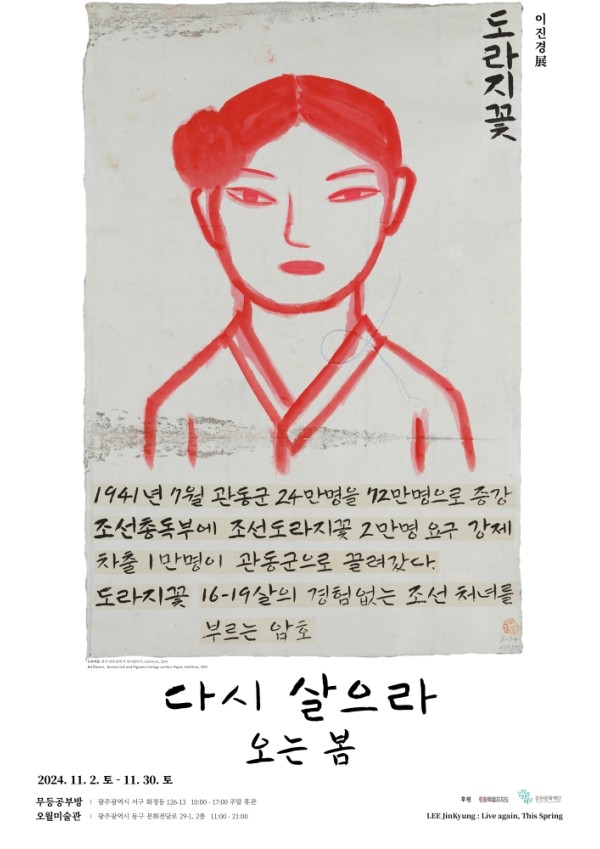 이진경展
도라지꽃
1941년 7월 관동군 24만명을 72만명으로 증강
조선총독부에 조선도라지꽃 2만명 요구 강제
차출 1만명이 관동군으로 끌려갔다.
도라지꽃 16-19살의 경험없는 조선 처녀를
부르는 암호
다시 살으라
오는 봄
2024. 11. 2. 토 - 11. 30. 토
무등공부방 | 광주광역시 서구 화정동 126-13 10:00 - 17:00 주말 휴관
오월미술관 | 광주광역시 동구 문화전당로 29-1, 2층 11:00 - 21:00
후원 강원특별자치도 강원문화재단
LEE JinKyung : Live again, This Spring